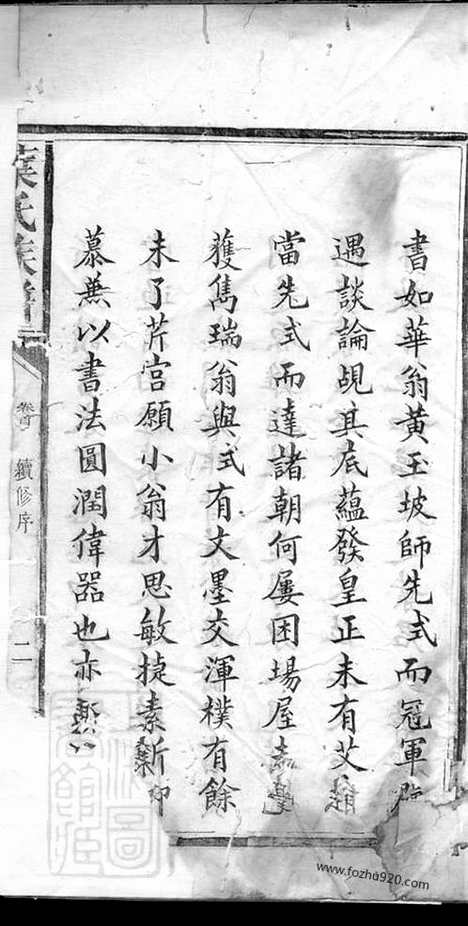 書如華翁黃玉坡師先式而冠軍
遇談論覘其底蘊發皇正未有艾
當先式而達諸朝何屢困場屋
獲雋瑞翁與式有文墨交渾樸有餘
未了芹宮願小翁才思敏捷素
慕無以書法圓潤偉器也亦
氏族譜
卷首
續修序
二
www.fozhu920.com